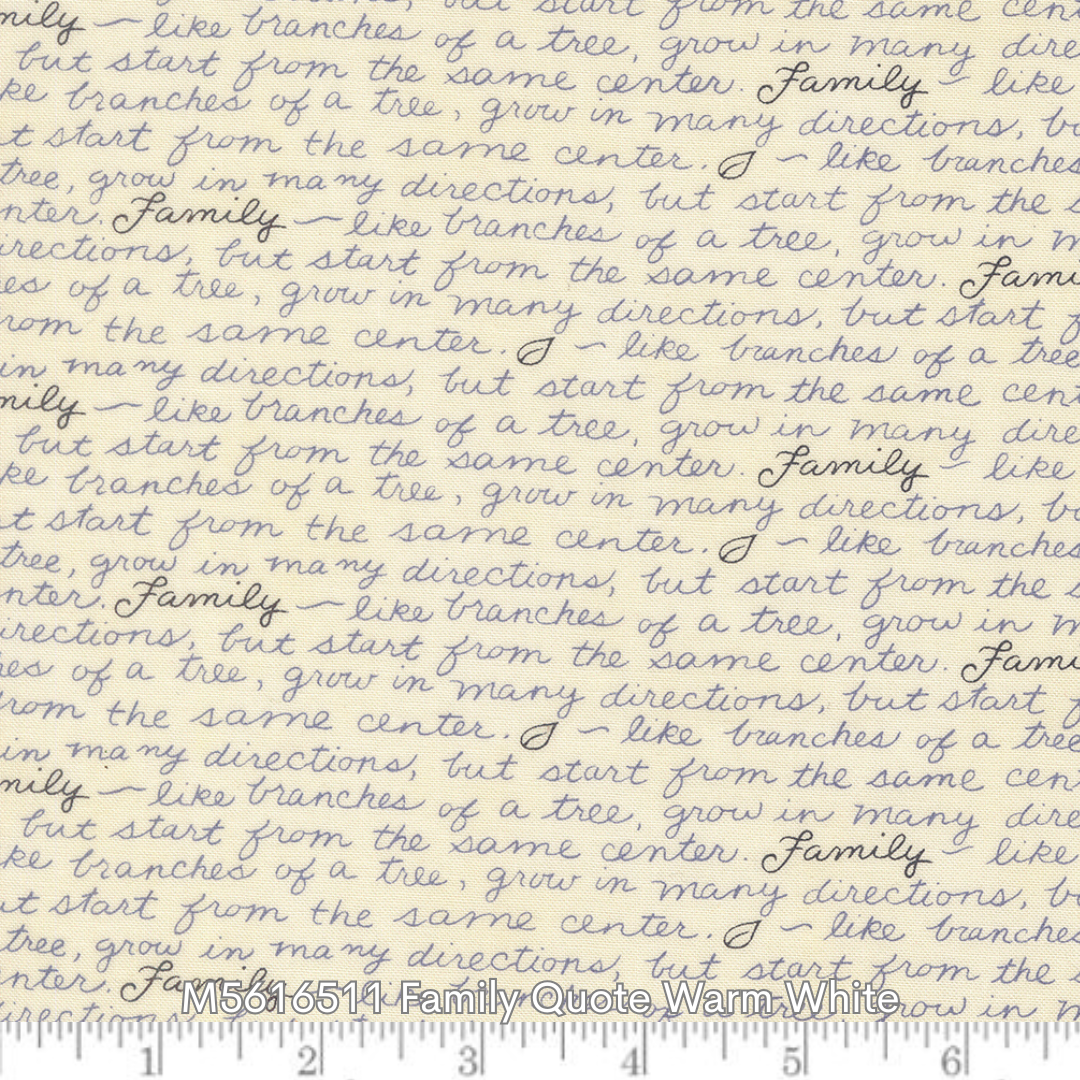 but start from the same cen
mily – like branches of a tree, grow in many dire
but start from the same center. Family – like
ke branches of a tree, grow in many directions, bu
t start from the same center. – like branches
tree, grow in many directions, but start from the s
nter. Family – like branches of a tree, grow in m
irections, but start from the same center. Fami
es of a tree, grow in many directions, but start f
rom the same center. – like branches of a tree
in many directions, but start from the same cent
mily – like branches of a tree, grow in many dire
but start from the same center. Family – like
ke branches of a tree, grow in many directions, bu
t start from the same center. – like branches
tree, grow in many directions, but start from the s
nter. Family – like branches of a tree, grow in m
irections, but start from the same center. Fami
es of a tree, grow in many directions, but start f
rom the same center. – like branches of a tree
in many directions, but start from the same cen
mily – like branches of a tree, grow in many dire
but start from the same center. Family – like
ke branches of a tree, grow in many directions, bu
ut start from the same center. – like branches
tree, grow in many directions, but start from the s
nter. Family grow in m
M5616511 Family Quote Warm White
1 2 3 4 5 6